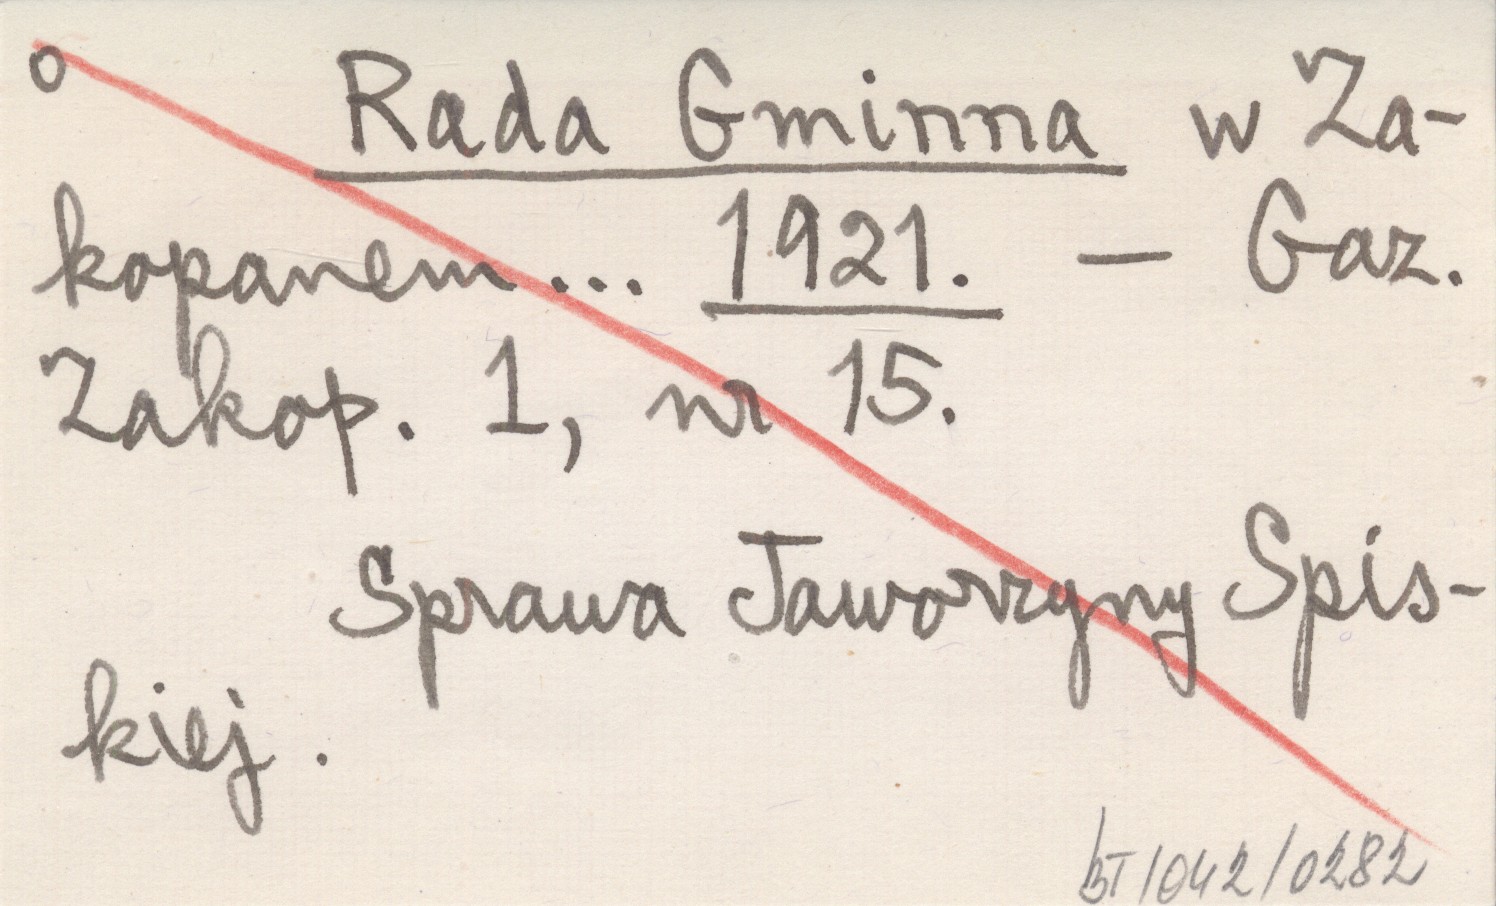 o Rada Gminna w Za-
kopanem... 1921. — Gaz.
Zakop. 1, nr 15.
Sprawa Jaworzyny Spis-
kiej.
BT/042/0282